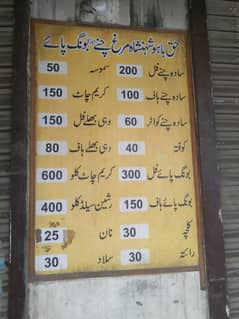 حق باہو شہنشاہ مرغ چنے، بونگ پائے
سادہ چنے فل 200 سموسہ 50
سادہ چنے ہاف 100 کریم چاٹ 150
سادہ چنے کواٹر 60 دہی بھلے فل 150
کوفتہ 40 دہی بھلے ہاف 80
بونگ پائے فل 300 کریم چاٹ کلو 600
بونگ پائے ہاف 150 رشین سیلڈ کلو 400
کلچہ 30 نان 25
رائتہ 30 سلاد 30